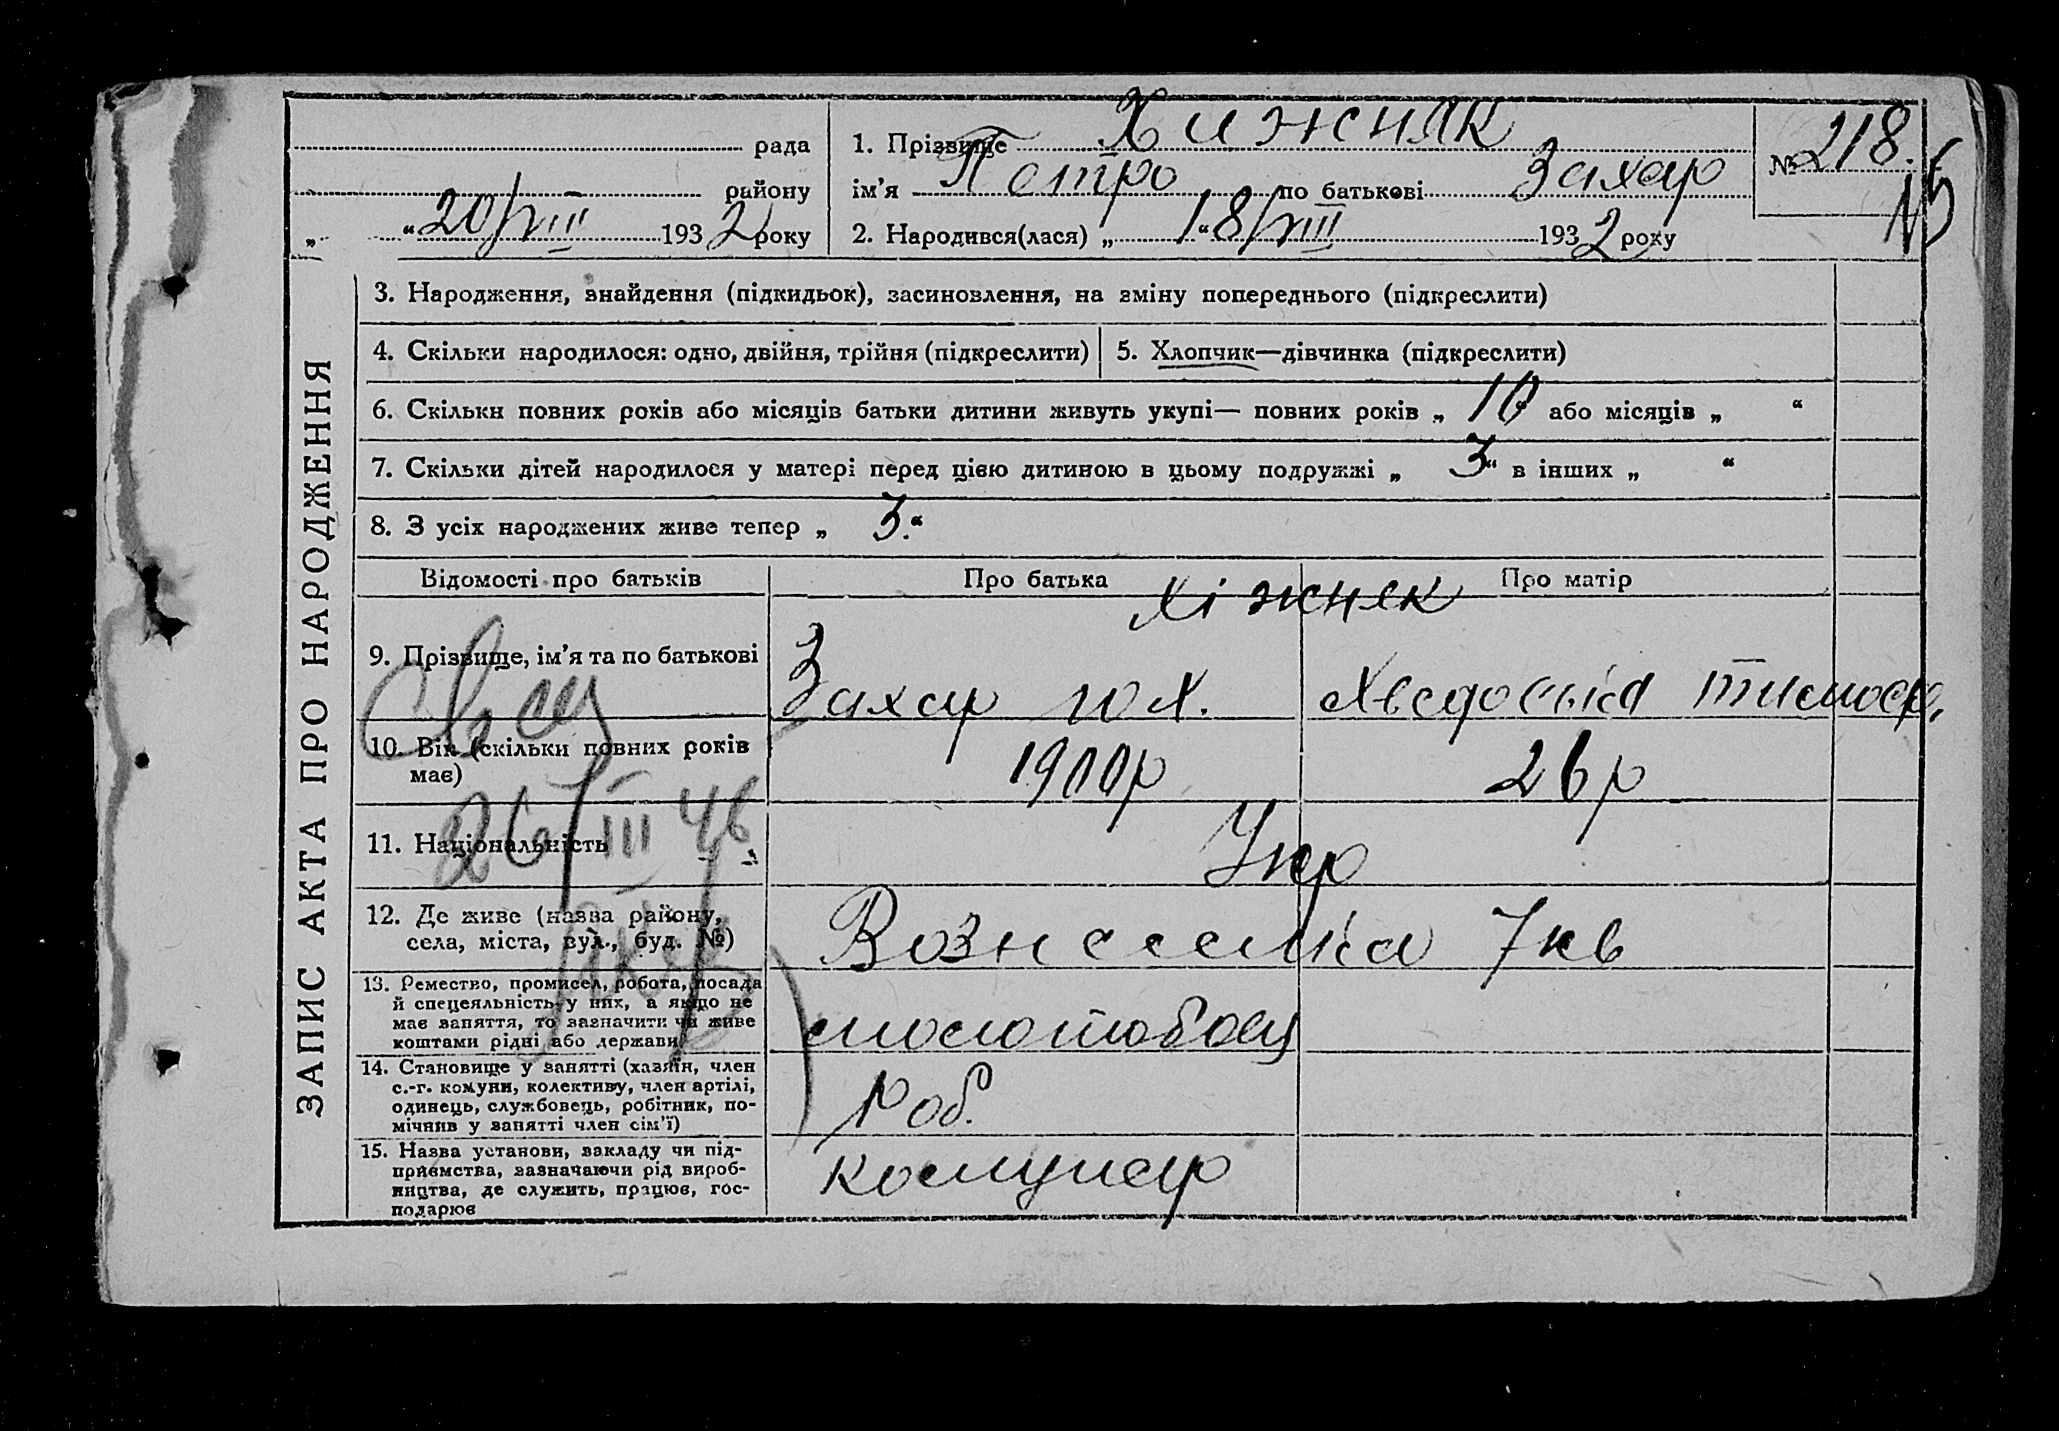 рада
1. Прізвище Хижняк
№ 218.
району
ім’я Петро по батькові Захар
„ “ 20/VIII 1932 року
2. Народився(лася) „ 18/VIII “ 1932 року
ЗАПИС АКТА ПРО НАРОДЖЕННЯ
3. Народження, знайдення (підкидьок), засиновлення, на зміну попереднього (підкреслити)
4. Скільки народилося: одно, двійня, трійня (підкреслити)
5. Хлопчик—дівчинка (підкреслити)
6. Скільки повних років або місяців батьки дитини живуть укупі— повних років „ 10 “ або місяців „ “
7. Скільки дітей народилося у матері перед цією дитиною в цьому подружжі „ 3 “ в інших „ “
8. З усіх народжених живе тепер „ 3. “
Відомості про батьків
Про батька
Про матір
Хіжняк
9. Прізвище, ім’я та по батькові
Захар
10. Вік (скільки повних років
має)
1900р
26р
26/III 46
11. Національність „
Укр
12. Де живе (назва району,
села, міста, вул., буд. №)
Вознесенка 7кв
13. Ремество, промисел, робота, посада
й спецеяльність у них, а якщо не
має заняття, то зазначити чи живе
коштами рідні або держави
молотобоец
14. Становище у занятті (хазяїн, член
с.-г. комуни, колективу, член артілі,
одинець, службовець, робітник, по-
мічнив у занятті член сім’ї)
Роб.
15. Назва установи, закладу чи під-
приємства, зазначаючи рід вироб-
ництва, де служить, працює, гос-
подарює
Комунар